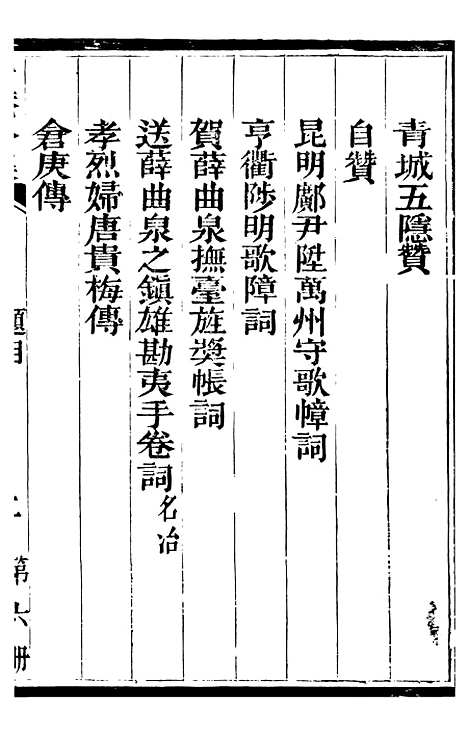 青城五隱贊
自贊
昆明鄺尹陞萬州守歌幛詞
亨衢陟明歌障詞
賀薛曲泉撫臺旌奬帳詞
送薛曲泉之鎭雄勘夷手卷詞 名冶
孝烈婦唐貴梅傳
倉庚傳
題目
第六册